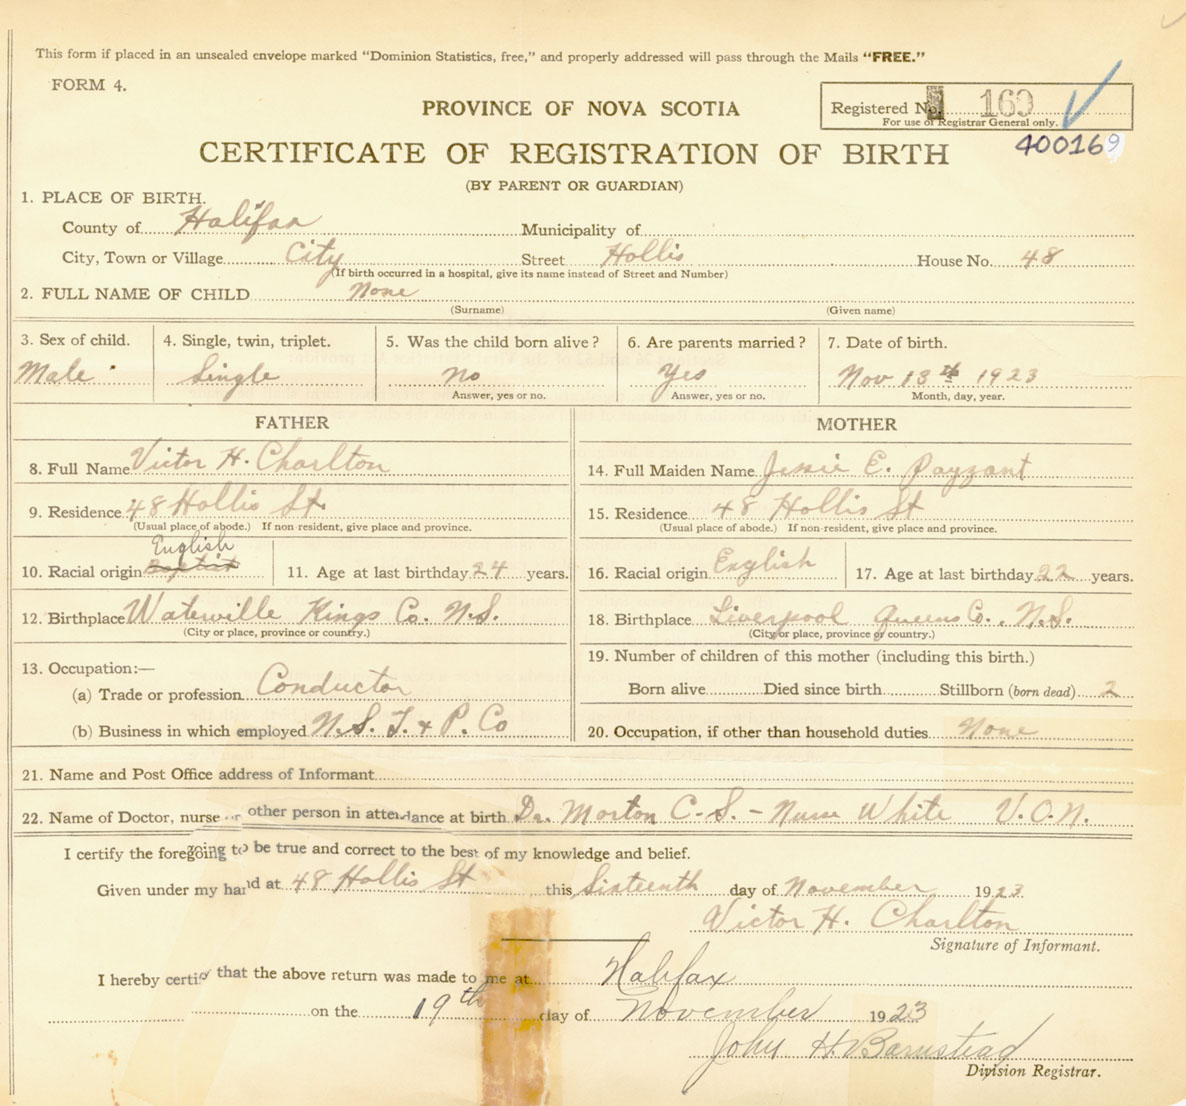 This form if placed in an unsealed envelope marked "Dominion Statistics, free," and properly addressed will pass through the Mails "FREE."
FORM 4.
PROVINCE OF NOVA SCOTIA
Registered No. 169
For use of Registrar General only.
400169
CERTIFICATE OF REGISTRATION OF BIRTH
(BY PARENT OR GUARDIAN)
1. PLACE OF BIRTH.
County of Halifax Municipality of
City, Town or Village City Street Hollis House No. 48
(If birth occurred in a hospital, give its name instead of Street and Number)
2. FULL NAME OF CHILD None
(Surname) (Given name)
3. Sex of child. 4. Single, twin, triplet. 5. Was the child born alive? 6. Are parents married? 7. Date of birth.
Male Single no Yes Nov 13th 1923
Answer, yes or no. Answer, yes or no. Month, day, year.
FATHER MOTHER
8. Full Name Victor H. Charlton 14. Full Maiden Name Jessie E. Payzant
9. Residence 48 Hollis St. 15. Residence 48 Hollis St
(Usual place of abode.) If non-resident, give place and province. (Usual place of abode.) If non-resident, give place and province.
English
10. Racial origin Baptist 11. Age at last birthday 24 years. 16. Racial origin English 17. Age at last birthday 22 years.
12. Birthplace Waterville Kings Co. N.S. 18. Birthplace Liverpool Queens Co., N.S.
(City or place, province or country.) (City or place, province or country.)
13. Occupation:— 19. Number of children of this mother (including this birth.)
(a) Trade or profession Conductor Born alive Died since birth Stillborn (born dead) 2
(b) Business in which employed N.S.T. & P. Co 20. Occupation, if other than household duties None
21. Name and Post Office address of Informant
22. Name of Doctor, nurse or other person in attendance at birth Dr. Morton C.S. - Nurse White V.O.N.
I certify the foregoing to be true and correct to the best of my knowledge and belief.
Given under my hand at 48 Hollis St this Sixteenth day of November 1923
Victor H. Charlton
Signature of Informant.
I hereby certify that the above return was made to me at Halifax
on the 19th day of November 1923
John H. Barnstead
Division Registrar.